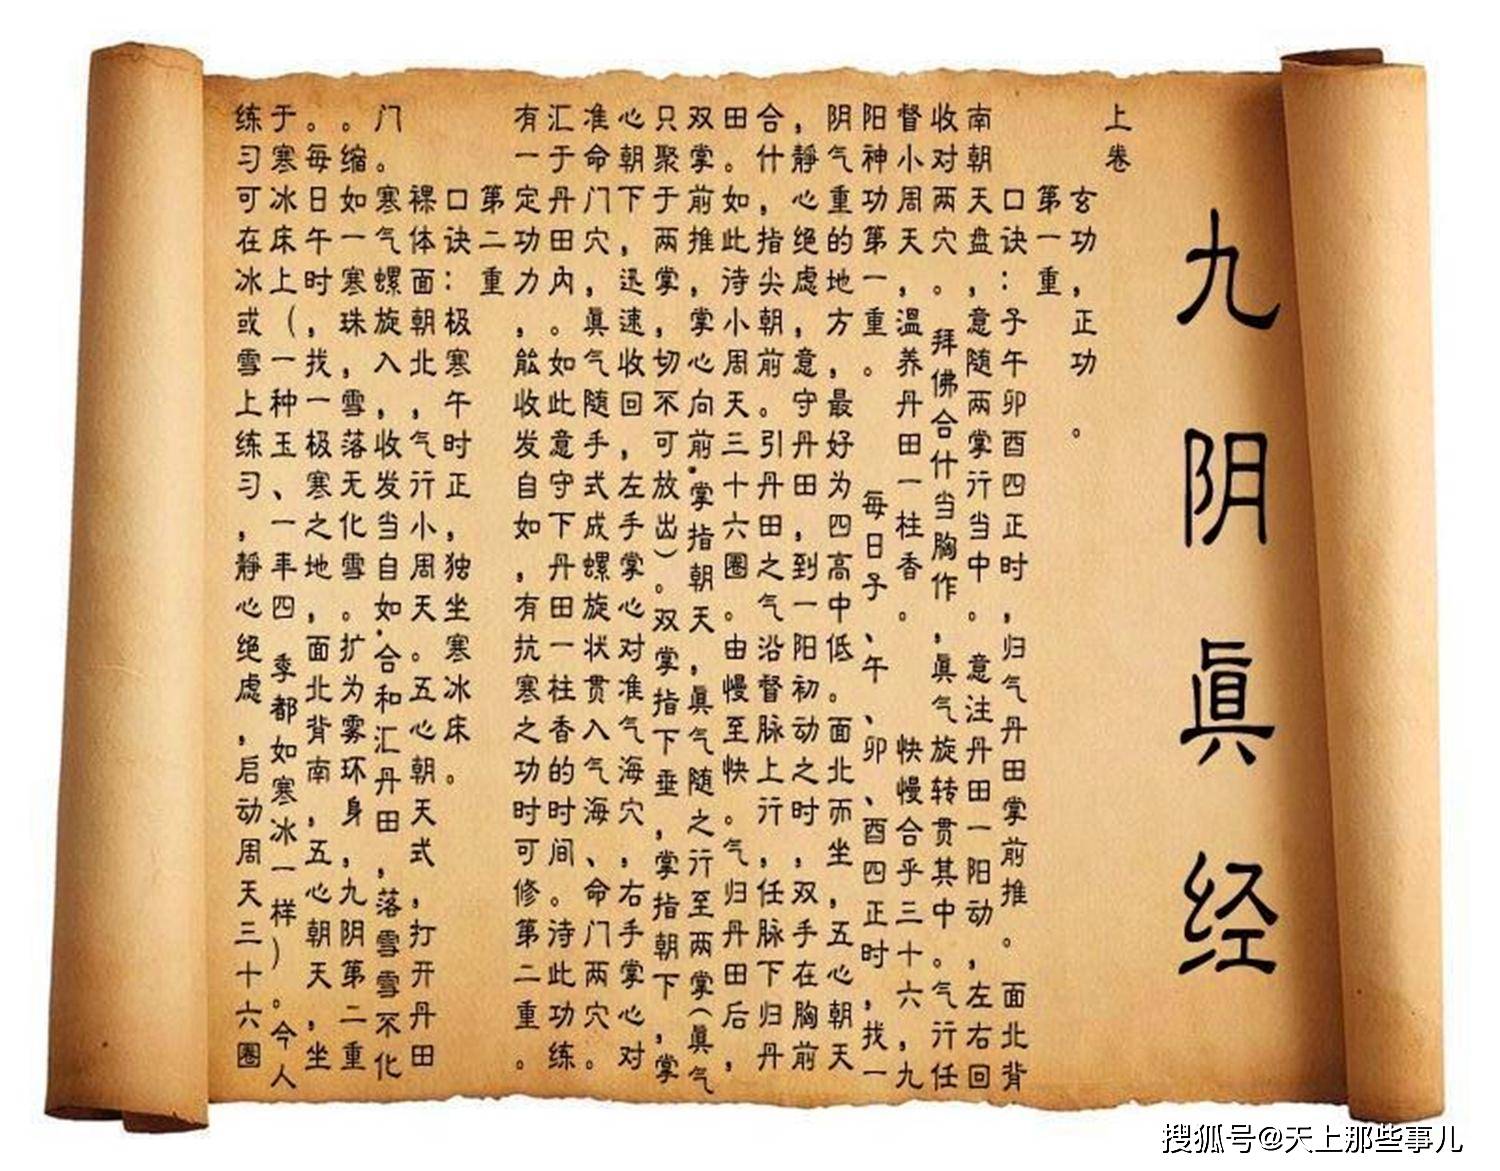 九阴眞经
上卷
玄功，正功。
第一重
口诀：子午卯酉四正时，归气丹田掌前推。面北背
南朝天盘，意随两掌行当中。意注丹田一阳动，左右回
收对两穴。拜佛合什当胸作，眞气旋转贯其中。气行任
督小周天，温养丹田一柱香。快慢合乎三十六，九
阳神功第一重。每日子、午、卯、酉四正时，找一
阴气重的地方，最好为四高中低。面北而坐，五心朝天
，静心绝虑，意守丹田，到一阳初动之时，双手在胸前
合什，指尖朝前。引丹田之气沿督脉上行，任脉下归丹
田。如此待小周天三十六圈。由慢至快。气归丹田后，
双掌前推，掌心向前.掌指朝天，眞气随之行至两掌（眞气
只聚于两掌，切不可放出）。双掌指下垂，掌指朝下，掌
心朝下，迅速收回，左手掌心对准气海穴，右手掌心对
准命门穴，眞气随手式成螺旋状贯入气海、命门两穴。
汇于丹田内。如此意守下丹田一柱香的时间。待此功练
有一定功力，能收发自如，有抗寒之功时可修第二重。
第二重
口诀：极寒午时正，独坐寒冰床。
裸体面朝北，气行小周天。五心朝天式，打开丹田
门。寒气螺旋入，收发当自如.合和汇丹田，落雪雪不化
。缩如一寒珠，雪落无化雪。扩为雾环身，九阴第二重
。每日午时，找一极寒之地，面北背南，五心朝天，坐
于寒冰床上（一种玉、一年四季都如寒冰一样）。今人
练习可在冰或雪上练习，静心绝虑，启动周天三十六圈
搜狐号@天上那些事儿